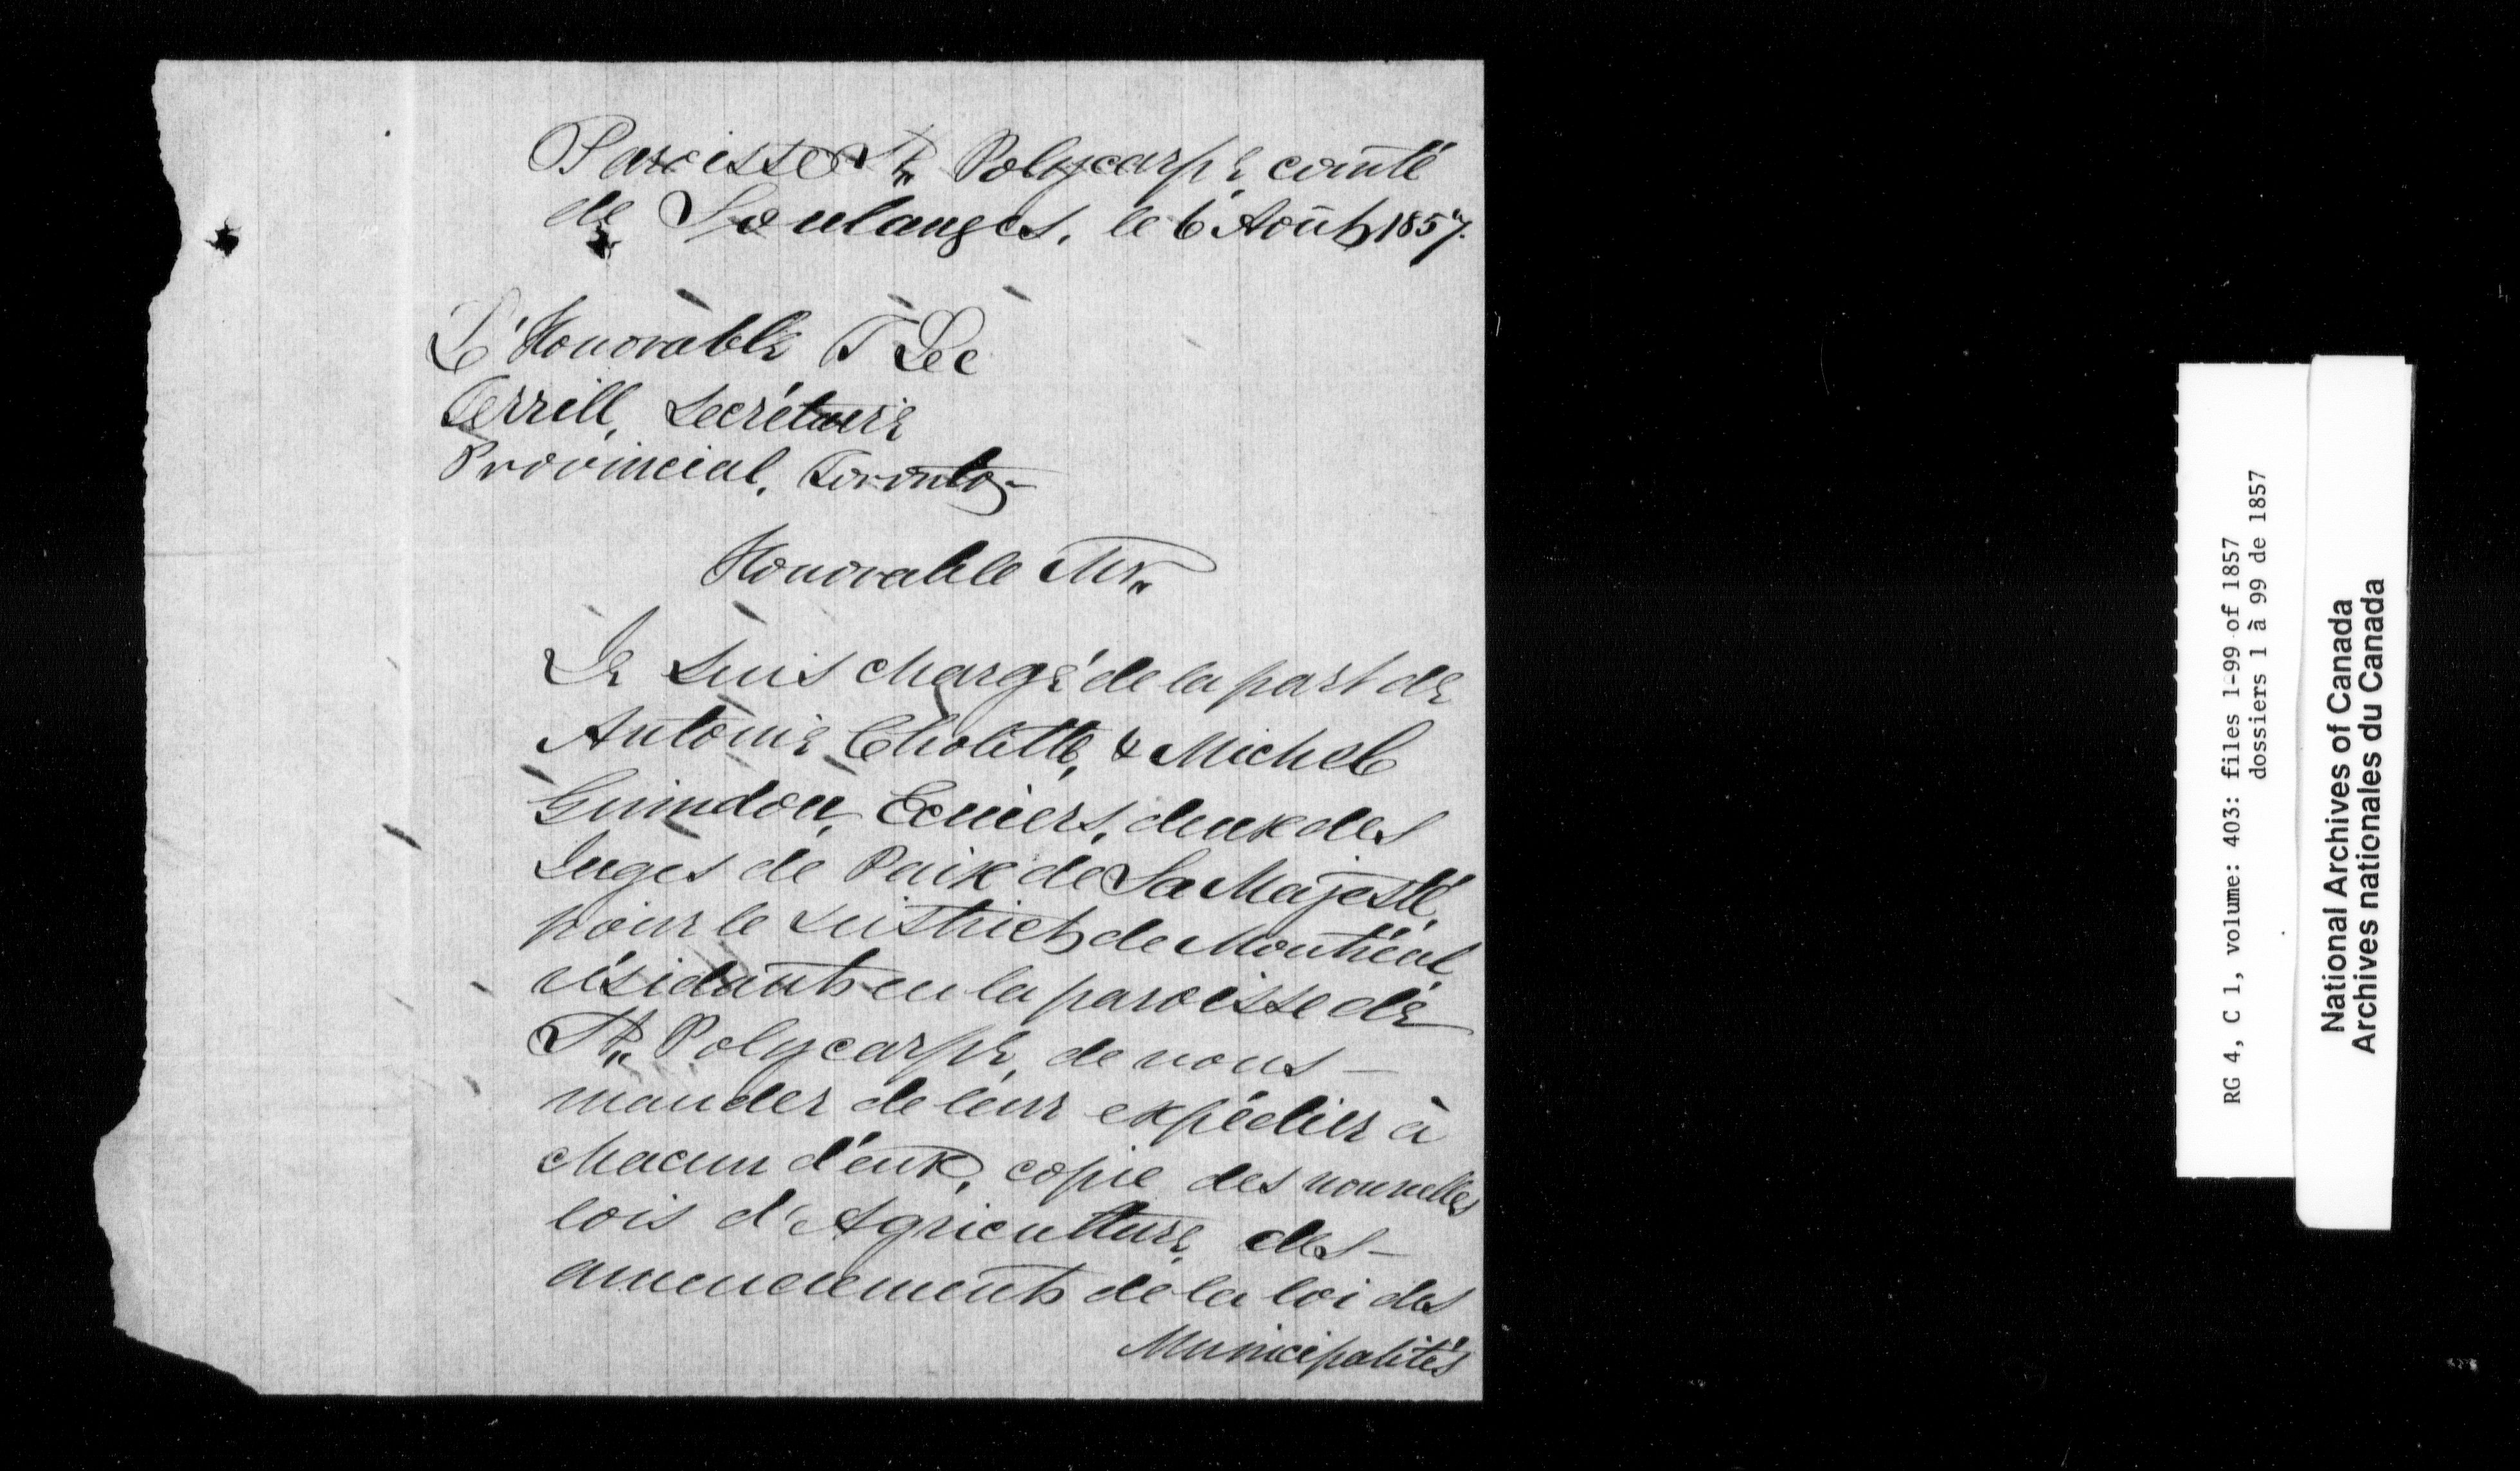 Paroisse St Polycarpe, comté
de Soulanges, le 6 Août 1857.
L'Honorable T Lee
Terrill, Secrétaire
Provincial, Toronto-
Honorable Mr.
Je suis chargé de la part de
Antoine Cholette, & Michel
Guindon, Ecuiers, deux des
Juges de Paix de Sa Majesté,
pour le district de Montréal,
résidants en la paroisse de
St. Polycarpe, de vous -
mander de leur expédier à
chacun d'eux, copie des nouvelles
lois d'Agriculture, des -
amendements de la loi des
Municipalités
RG 4, C 1, volume: 403: files 1-99 of 1857
dossiers 1 à 99 de 1857
National Archives of Canada
Archives nationales du Canada